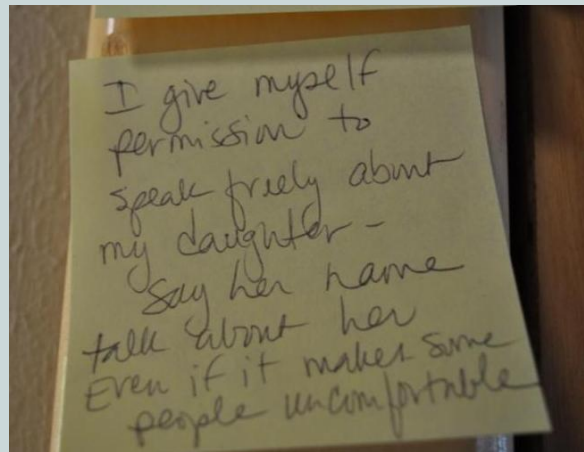 I give myself
permission to
speak freely about
my daughter -
Say her name
talk about her
Even if it makes some
people uncomfortable